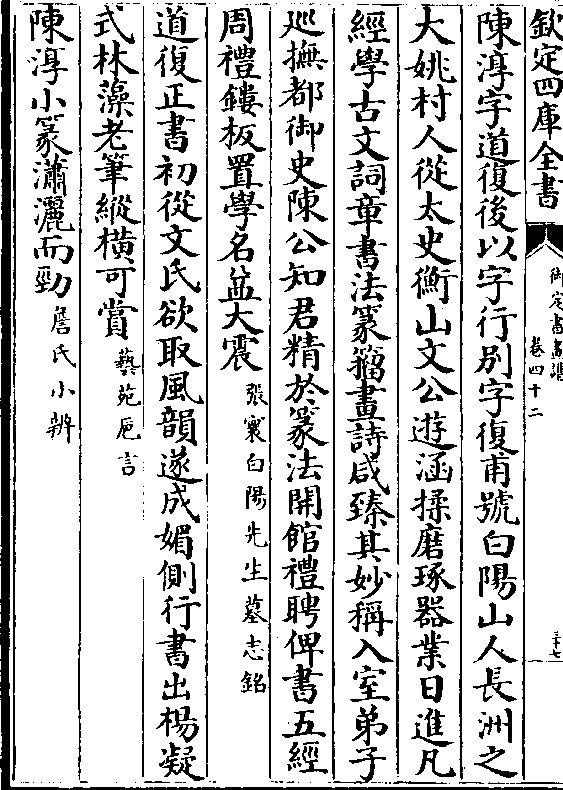 欽定四庫全書
御定書畫譜
卷四十二
三十七
陳淳字道復後以字行別字復甫號白陽山人長洲之
大姚村人從太史衡山文公遊涵揉磨琢器業日進凡
經學古文詞章書法篆籀畫詩咸臻其妙稱入室弟子
廵撫都御史陳公知君精於篆法開館禮聘俾書五經
周禮鏤板置學名益大震張寰白陽先生墓志銘
道復正書初從文氏欲取風韻遂成媚側行書出楊凝
式林藻老筆縱橫可賞藝苑巵言
陳淳小篆瀟灑而勁詹氏小辨